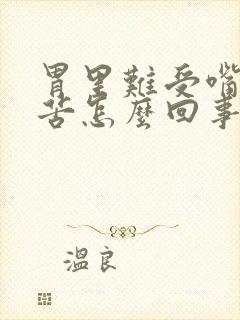 胃里難受嘴
苦怎麼回事
溫良